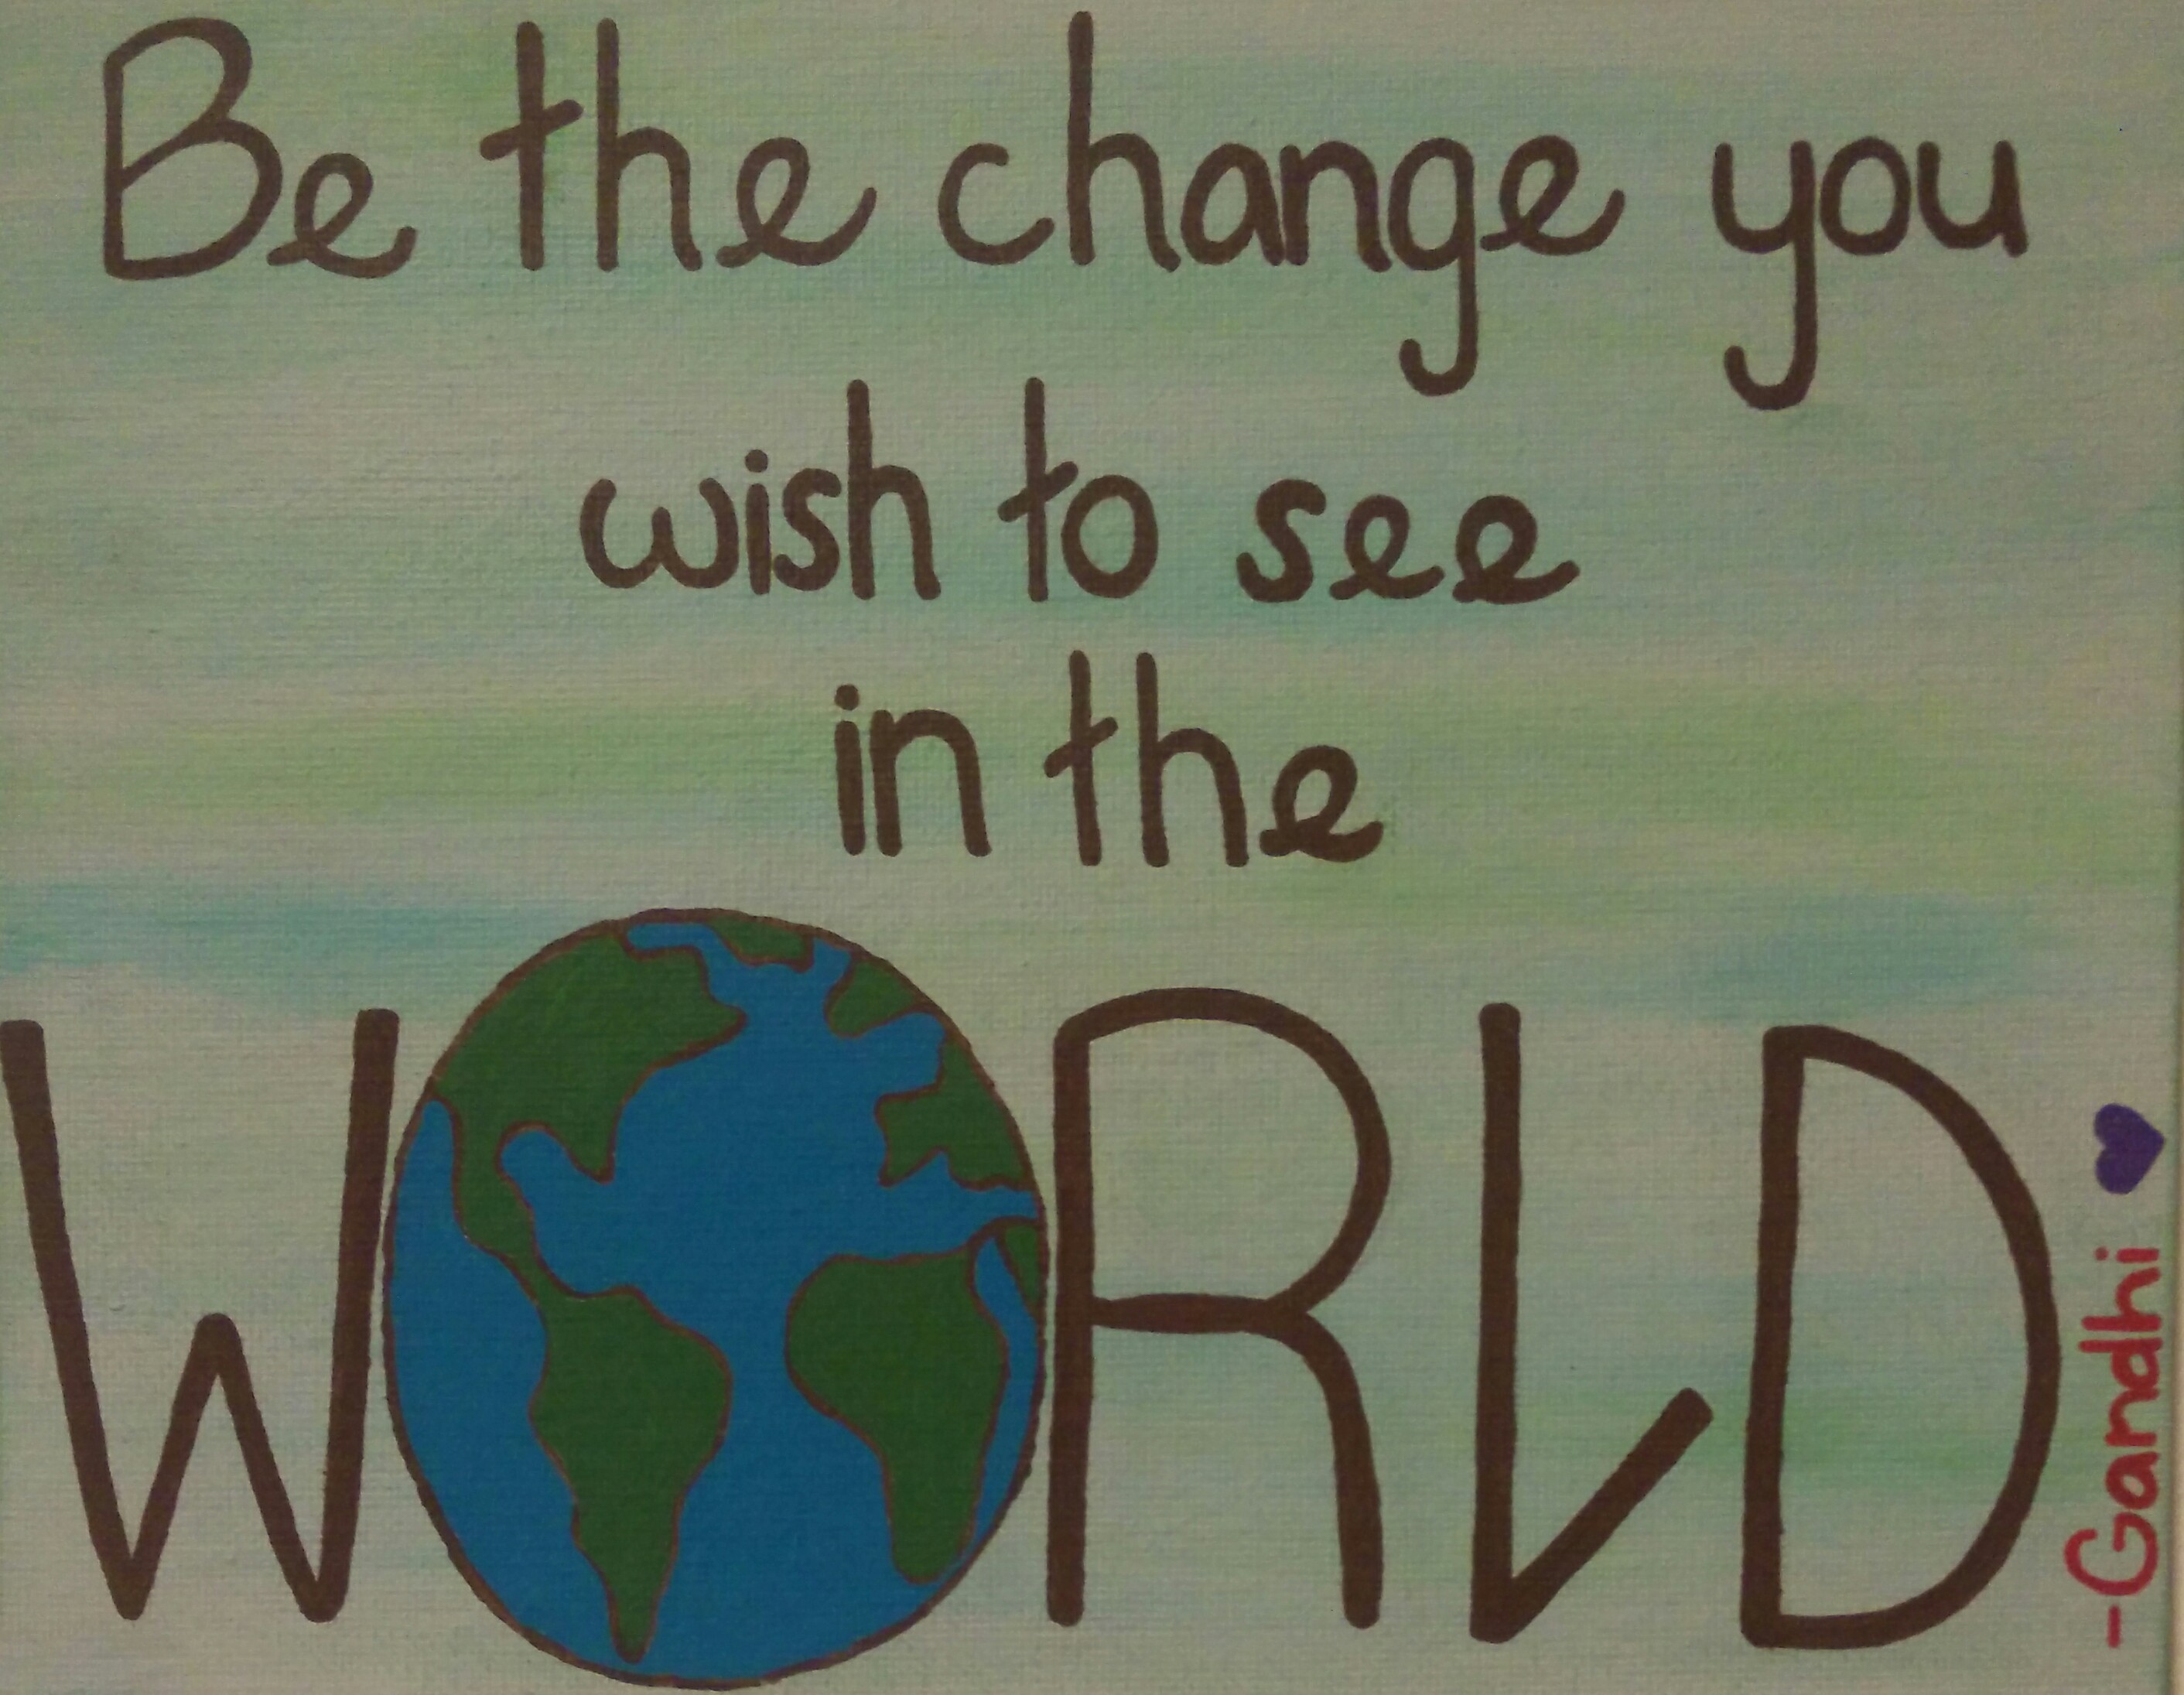 Be the change you
wish to see
in the
WORLD
-Gandhi